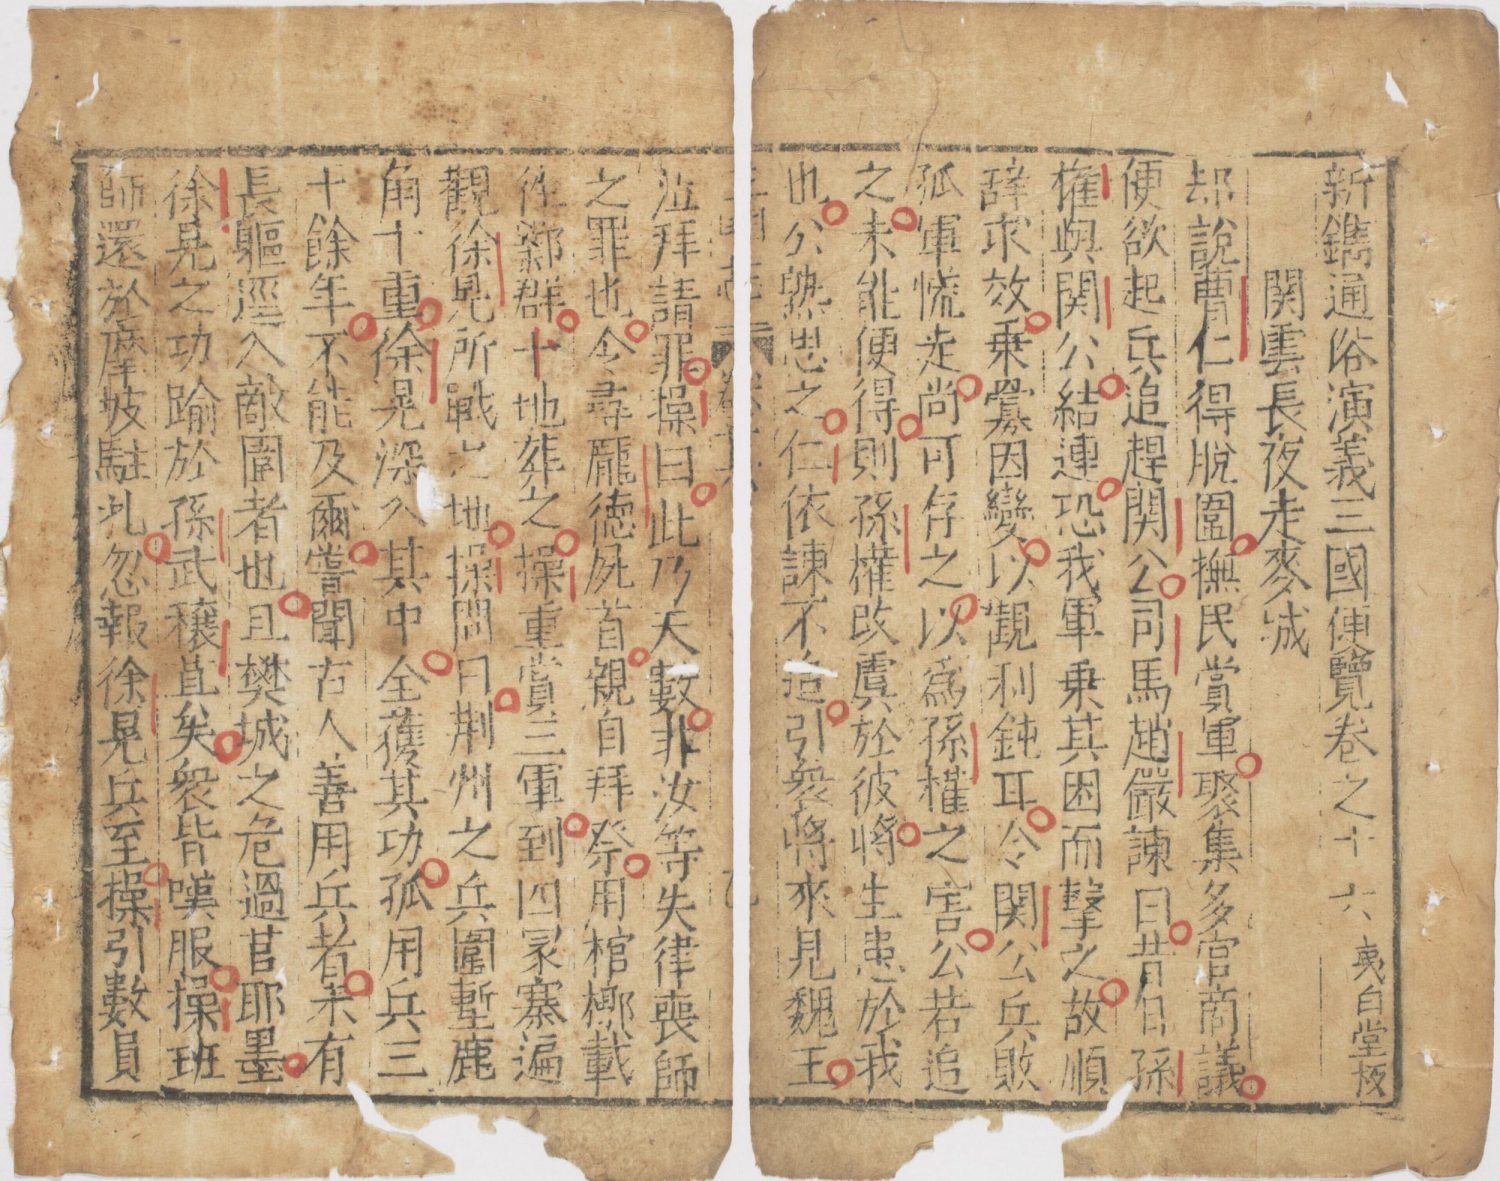 新鐫通俗演義三國便覽卷之十六 夷白堂板
関雲長夜走麥城
却說曹仁得脫圍撫民賞軍聚集多官商議
便欲起兵追趕関公司馬趙儼諫曰昔日孫
權與関公結連恐我軍乗其困而擊之故順
辞求效乗釁因變以觀利鈍耳今関公兵敗
孤軍慌走尚可存之以為孫權之害公若追
之未能便得則孫權改虞於彼將生患於我
也公熟思之仁依諫不追引衆將來見魏王
泣拜請罪操曰此乃天數非汝等失律喪師
之罪也令尋龐徳屍首親自拜祭用棺槨載
徃鄴群十地葬之操重賞三軍到四冢寨遍
觀徐晃所戰之地操問曰荆州之兵圍塹鹿
角十重徐晃深入其中全獲其功孤用兵三
十餘年不能及爾嘗聞古人善用兵者未有
長軀逕入敵圍者也且樊城之危過莒耶墨
徐晃之功踰於孫武穰苴矣衆皆嘆服操班
師還於摩坡駐扎忽報徐晃兵至操引數員